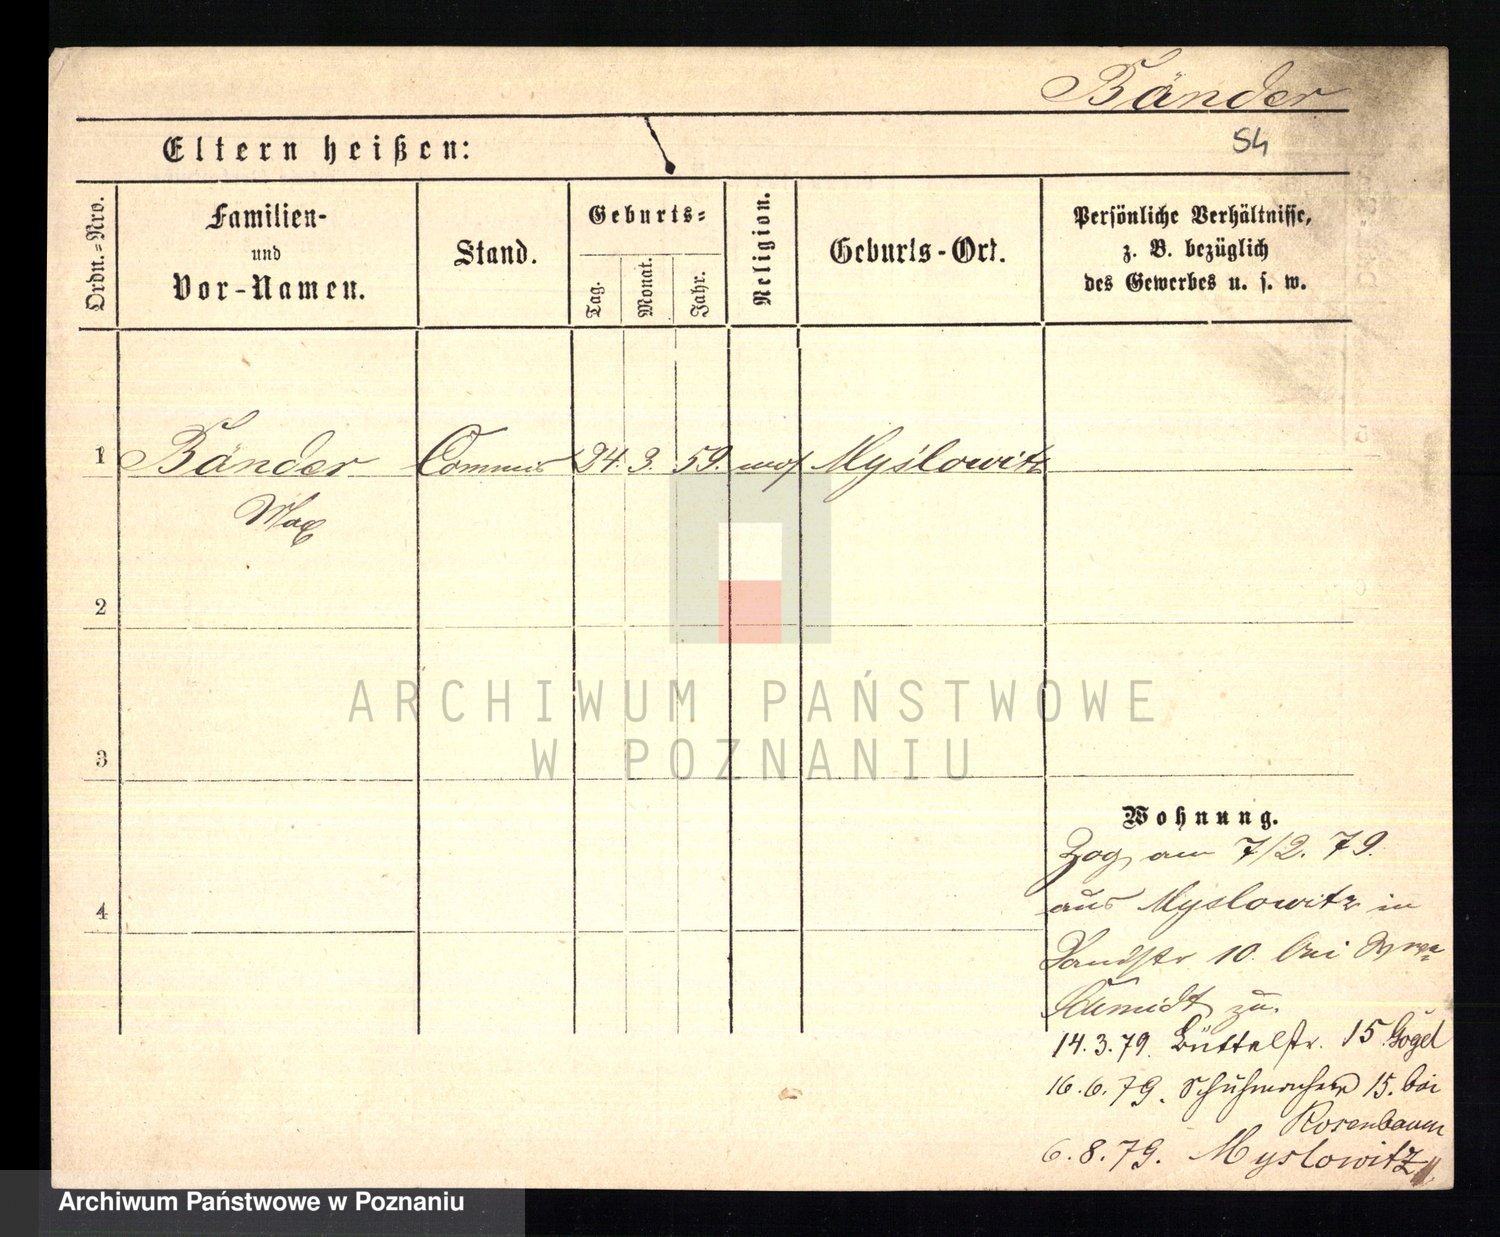 Bänder
54
Eltern heißen:
Ordn.=Nro.
Familien-
und
Vor-Namen.
Stand.
Geburts=
Tag.
Monat.
Jahr.
Religion.
Geburts-Ort.
Persönliche Verhältnisse,
z. B. bezüglich
des Gewerbes u. s. w.
1 Bänder Commis 24. 3. 59. mos Myslowitz
Max
2
3
4
ARCHIWUM PAŃSTWOWE
W POZNANIU
Wohnung.
Zog am 7/2. 79.
aus Myslowitz in
Sandstr 10. bei
Schmidt zu.
14.3.79. Büttelstr. 15 Gogel
16.6.79. Schuhmacherstr 15. bei
Rosenbaum
6.8.79. Myslowitz
Archiwum Państwowe w Poznaniu